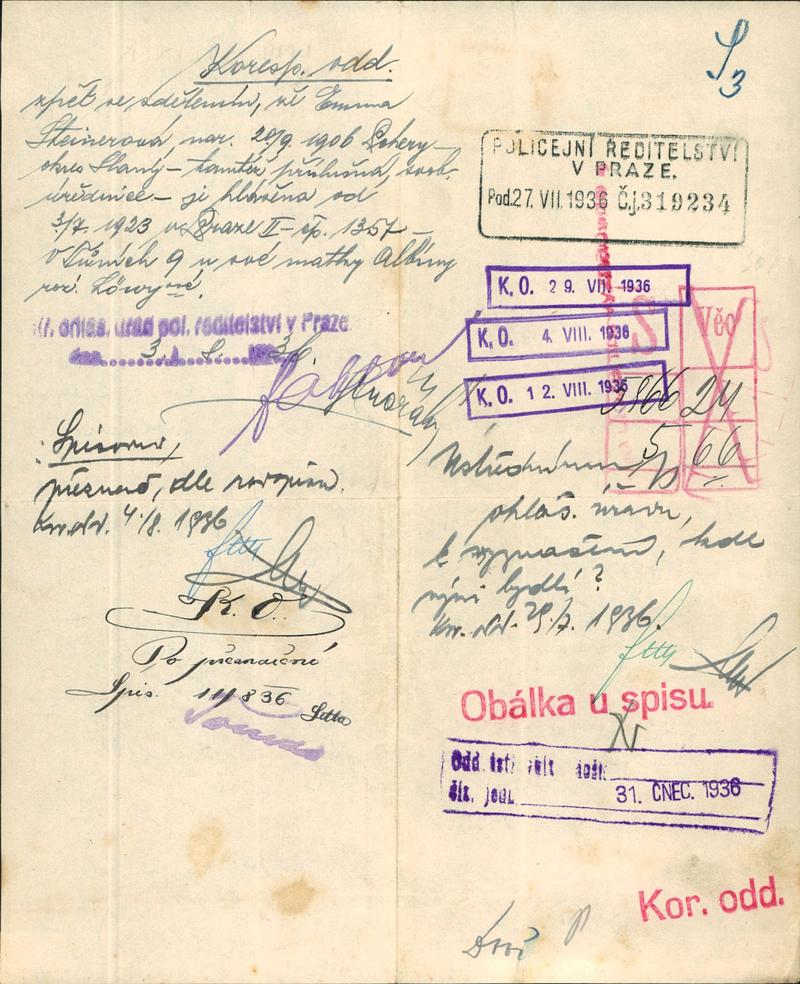 S
3
Koresp. odd.
zpět se sdělením, že Emma
Steinerová nar. 20/9. 1906
okres Slaný – tamtéž příslušná, svob.
úřednice – je hlášena od
3/7. 1923 v Praze II – čp. 1357 –
V Tůních 9 u své matky Albíny
roz. Löwyové.
ohlaš. úřad pol. ředitelství v Praze
dne 3. 8. 1936.
Spisovna,
přeznač, dle
4./8. 1936
K. O.
Po přeznačení
Spis. 11/8 36
POLICEJNÍ ŘEDITELSTVÍ
V PRAZE.
Pod. 27. VII. 1936 Č.j. 319234
K. O. 29. VII. 1936
K. O. 4. VIII. 1936
K. O. 12. VIII. 1936
S Věc
5866 24
5 66
Ústřednímu
ohlaš. úřadu,
k vyznačení, kde
nyní bydlí?
29./7. 1936.
Obálka u spisu.
Odd.
čís. jedn.
31. ČNEC. 1936
Kor. odd.